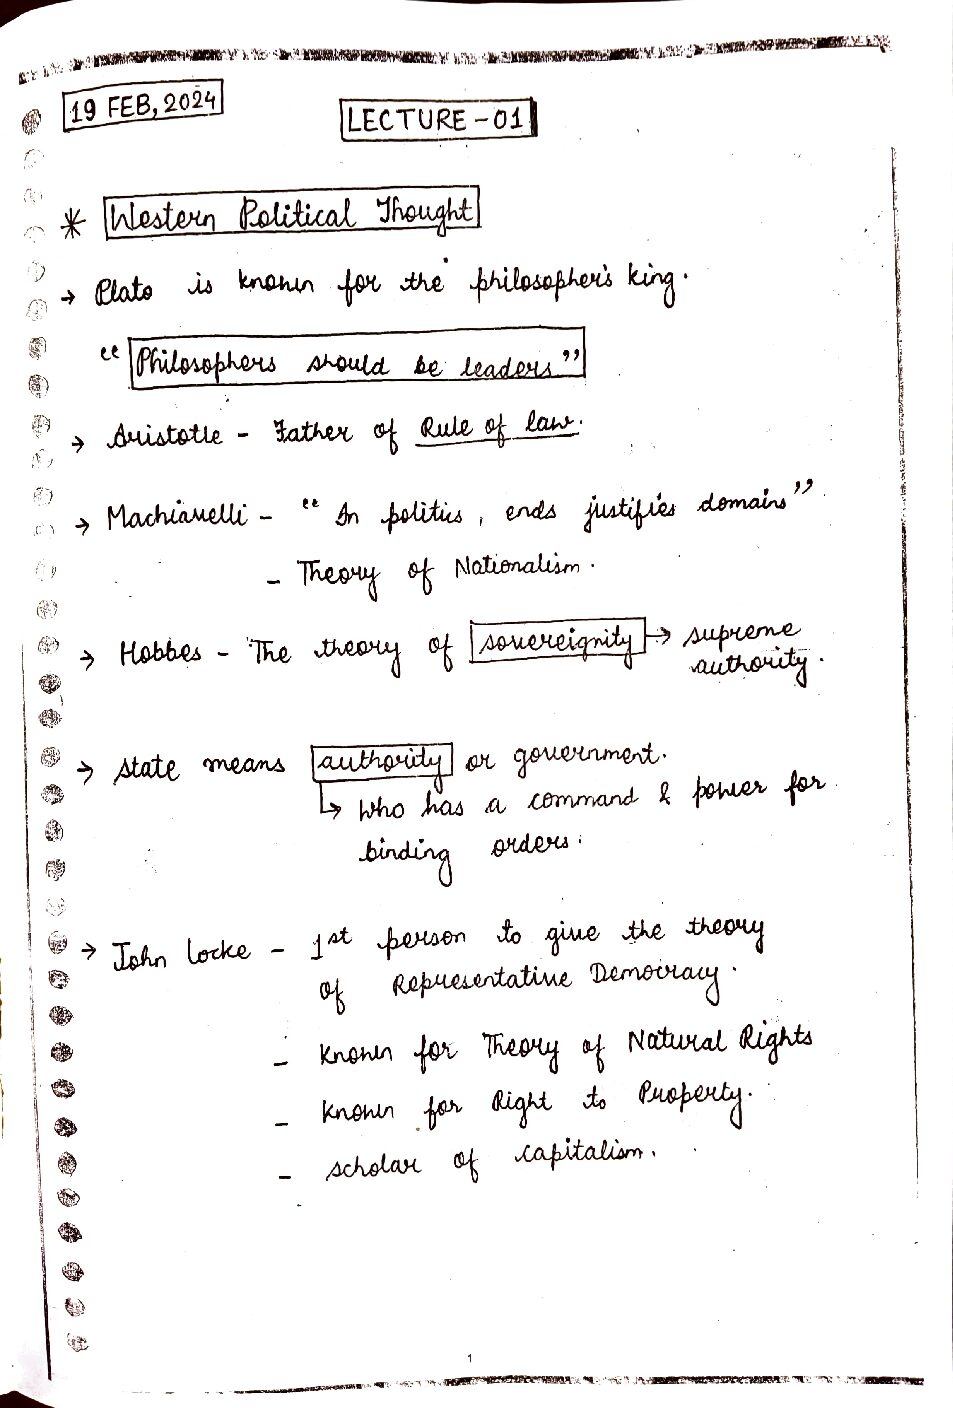 19 FEB, 2024
LECTURE - 01
* Western Political Thought
→ Plato is known for the philosopher's king.
"Philosophers should be leaders"
→ Aristotle - Father of Rule of law.
→ Machiavelli - "In politics, ends justifies domains"
- Theory of Nationalism.
→ Hobbes - The theory of sovereignity → supreme
authority.
→ state means authority or government.
↳ who has a command & power for
binding orders.
→ John Locke - 1st person to give the theory
of Representative Democracy.
- Known for Theory of Natural Rights
- Known for Right to Property.
- scholar of capitalism.
1